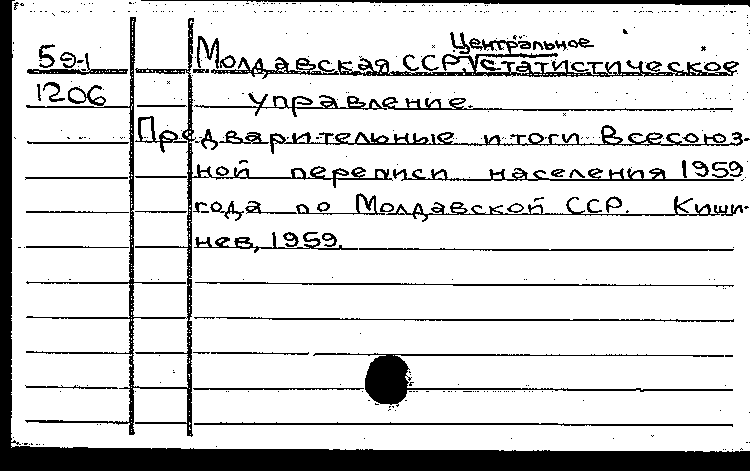 Центральное
59-1 Молдавская ССР. √ статистическое
1206 управление.
Предварительные итоги Всесоюз-
ной переписи населения 1959
года по Молдавской ССР. Киши-
нев, 1959.